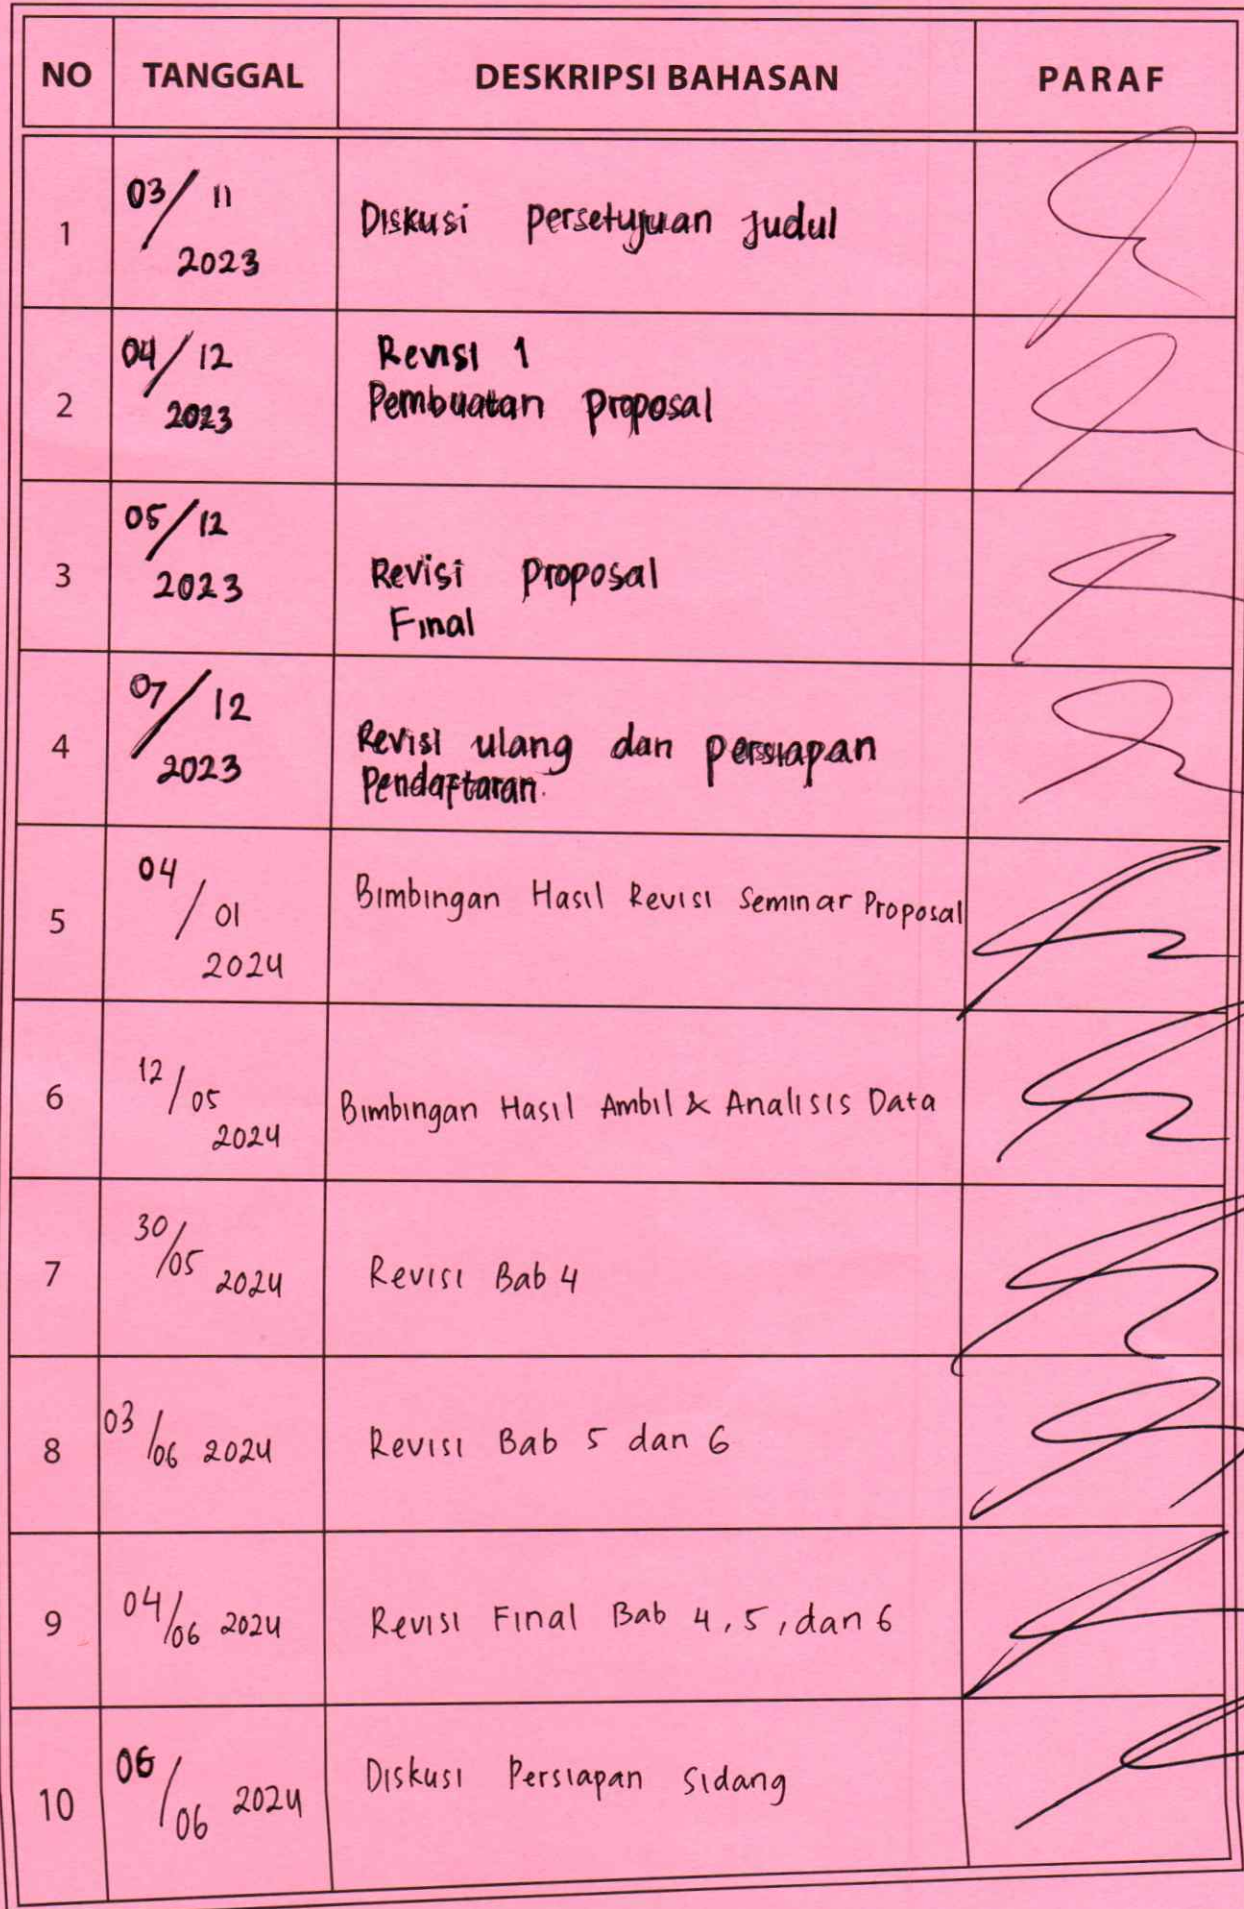 NO TANGGAL DESKRIPSI BAHASAN PARAF
1 03/11 2023 Diskusi persetujuan judul
2 04/12 2023 Revisi 1
Pembuatan proposal
3 05/12 2023 Revisi proposal
Final
4 07/12 2023 Revisi ulang dan persiapan
Pendaftaran.
5 04/01 2024 Bimbingan Hasil Revisi Seminar Proposal
6 12/05 2024 Bimbingan Hasil Ambil & Analisis Data
7 30/05 2024 Revisi Bab 4
8 03/06 2024 Revisi Bab 5 dan 6
9 04/06 2024 Revisi Final Bab 4, 5, dan 6
10 06/06 2024 Diskusi Persiapan Sidang